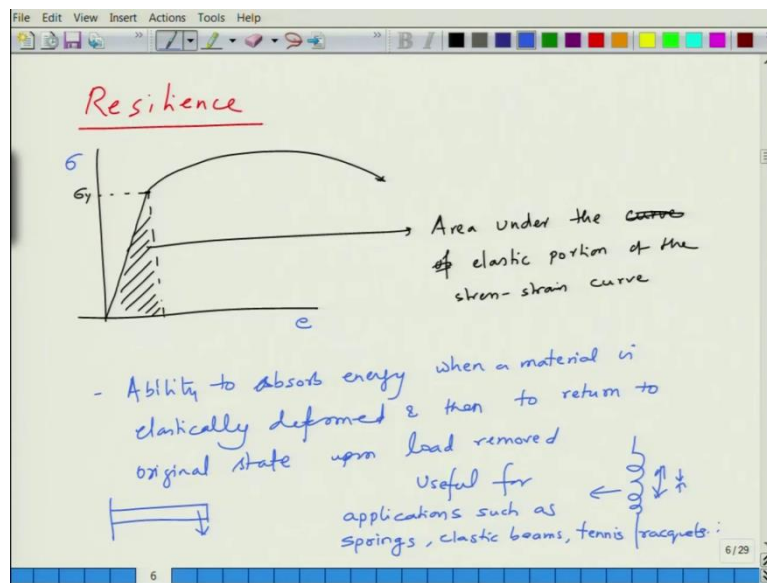 File Edit View Insert Actions Tools Help
B I
Resilience
σ
σy
Area under the curve
of elastic portion of the
stren-strain curve
e
- Ability to absorb energy when a material is
elastically deformed & then to return to
original state upon load removed
Useful for
applications such as
springs, elastic beams, tennis racquets.
6/29
6